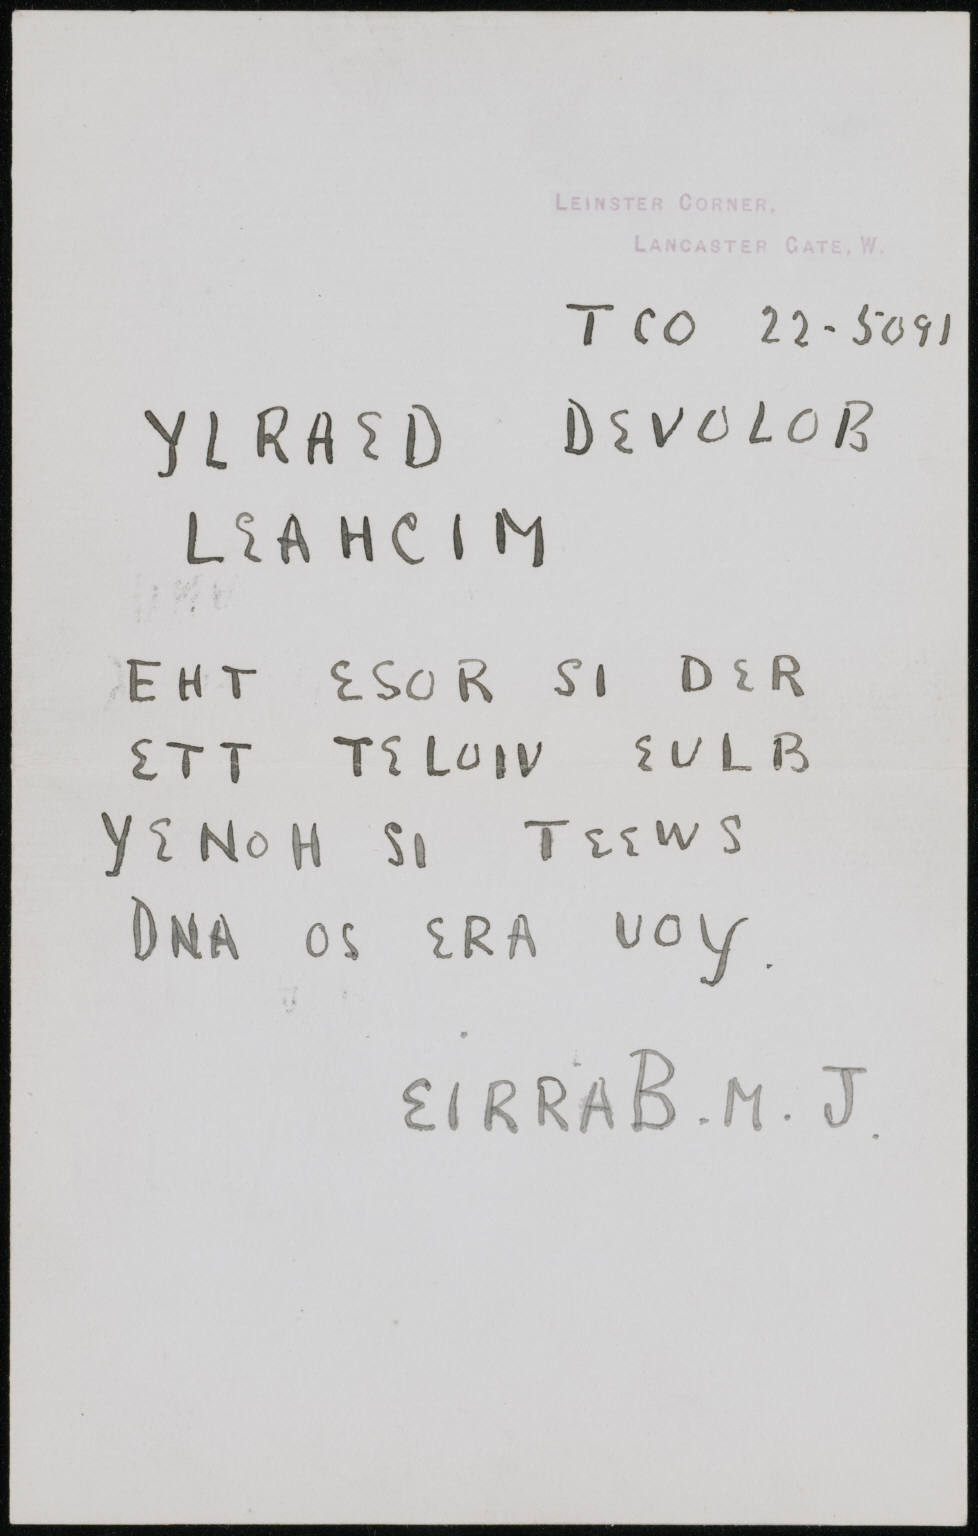 LEINSTER CORNER,
LANCASTER GATE, W.
TCO 22-5091
YLRAED DEVOLOB
LEAHCIM
EHT ESOR SI DER
ETT TELOIV EULB
YENOH SI TEEWS
DNA OS ERA UOY.
EIRRAB. M. J.